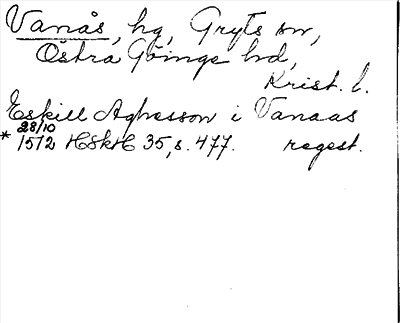 Vanås, hg, Gryts sn,
Östra Göinge hd,
Krist. l.
Eskill Aghesson i Vanaas
28/10
* 1512 HSkH 35, s. 477. regest.